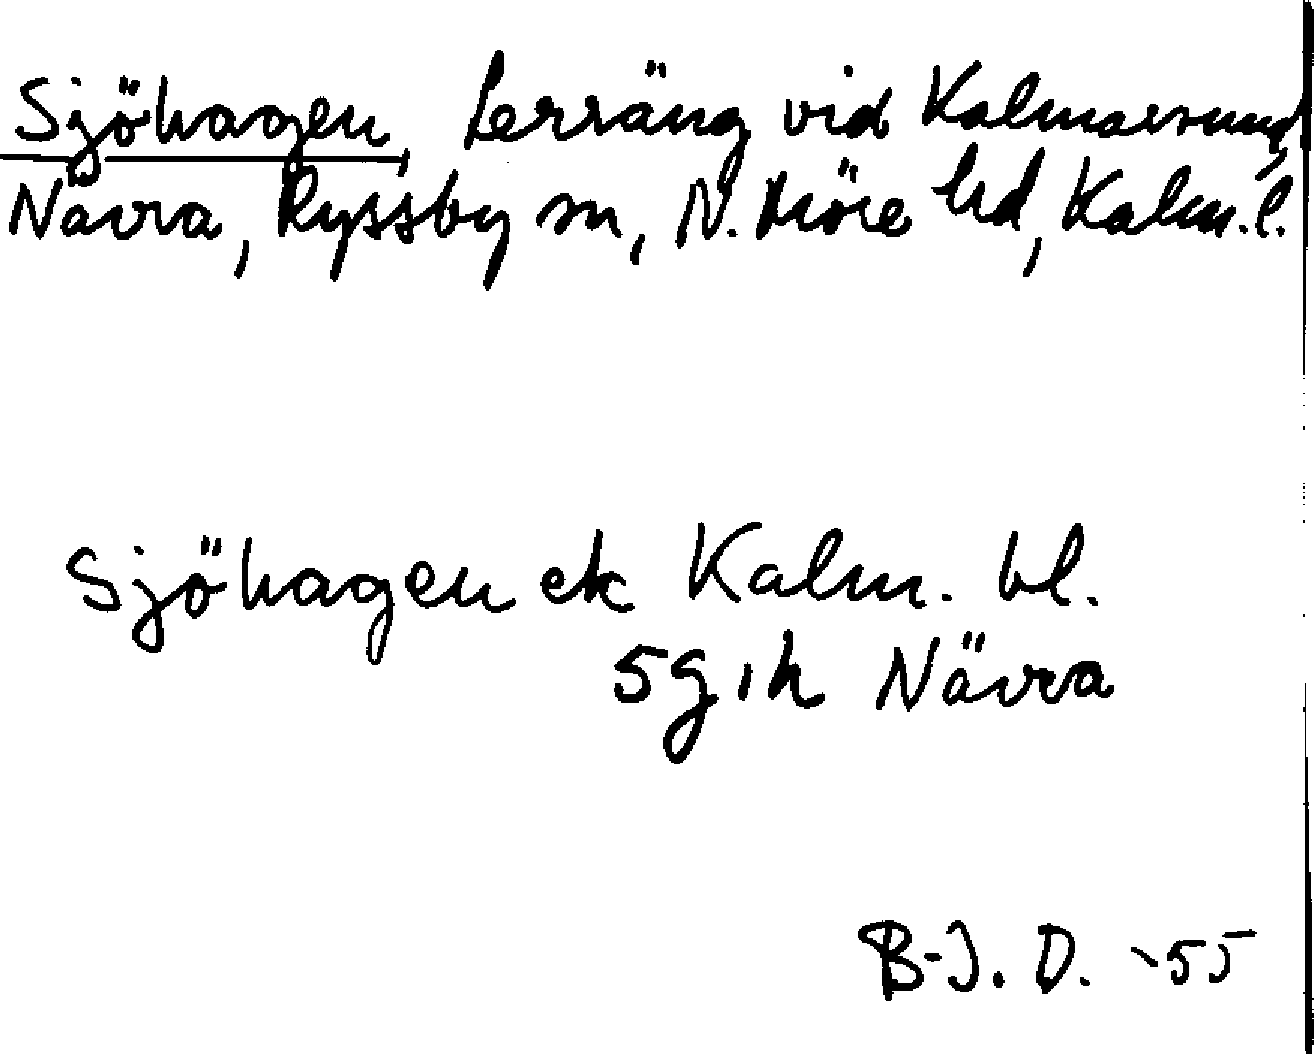 Sjöhagen, Lerräng vid Kalmarsund,
Nävra, Ryssby sn, N. Möre hd, Kalm. l.
Sjöhagen ek Kalm. bl.
5g, h Nävra
B-J. D. -55